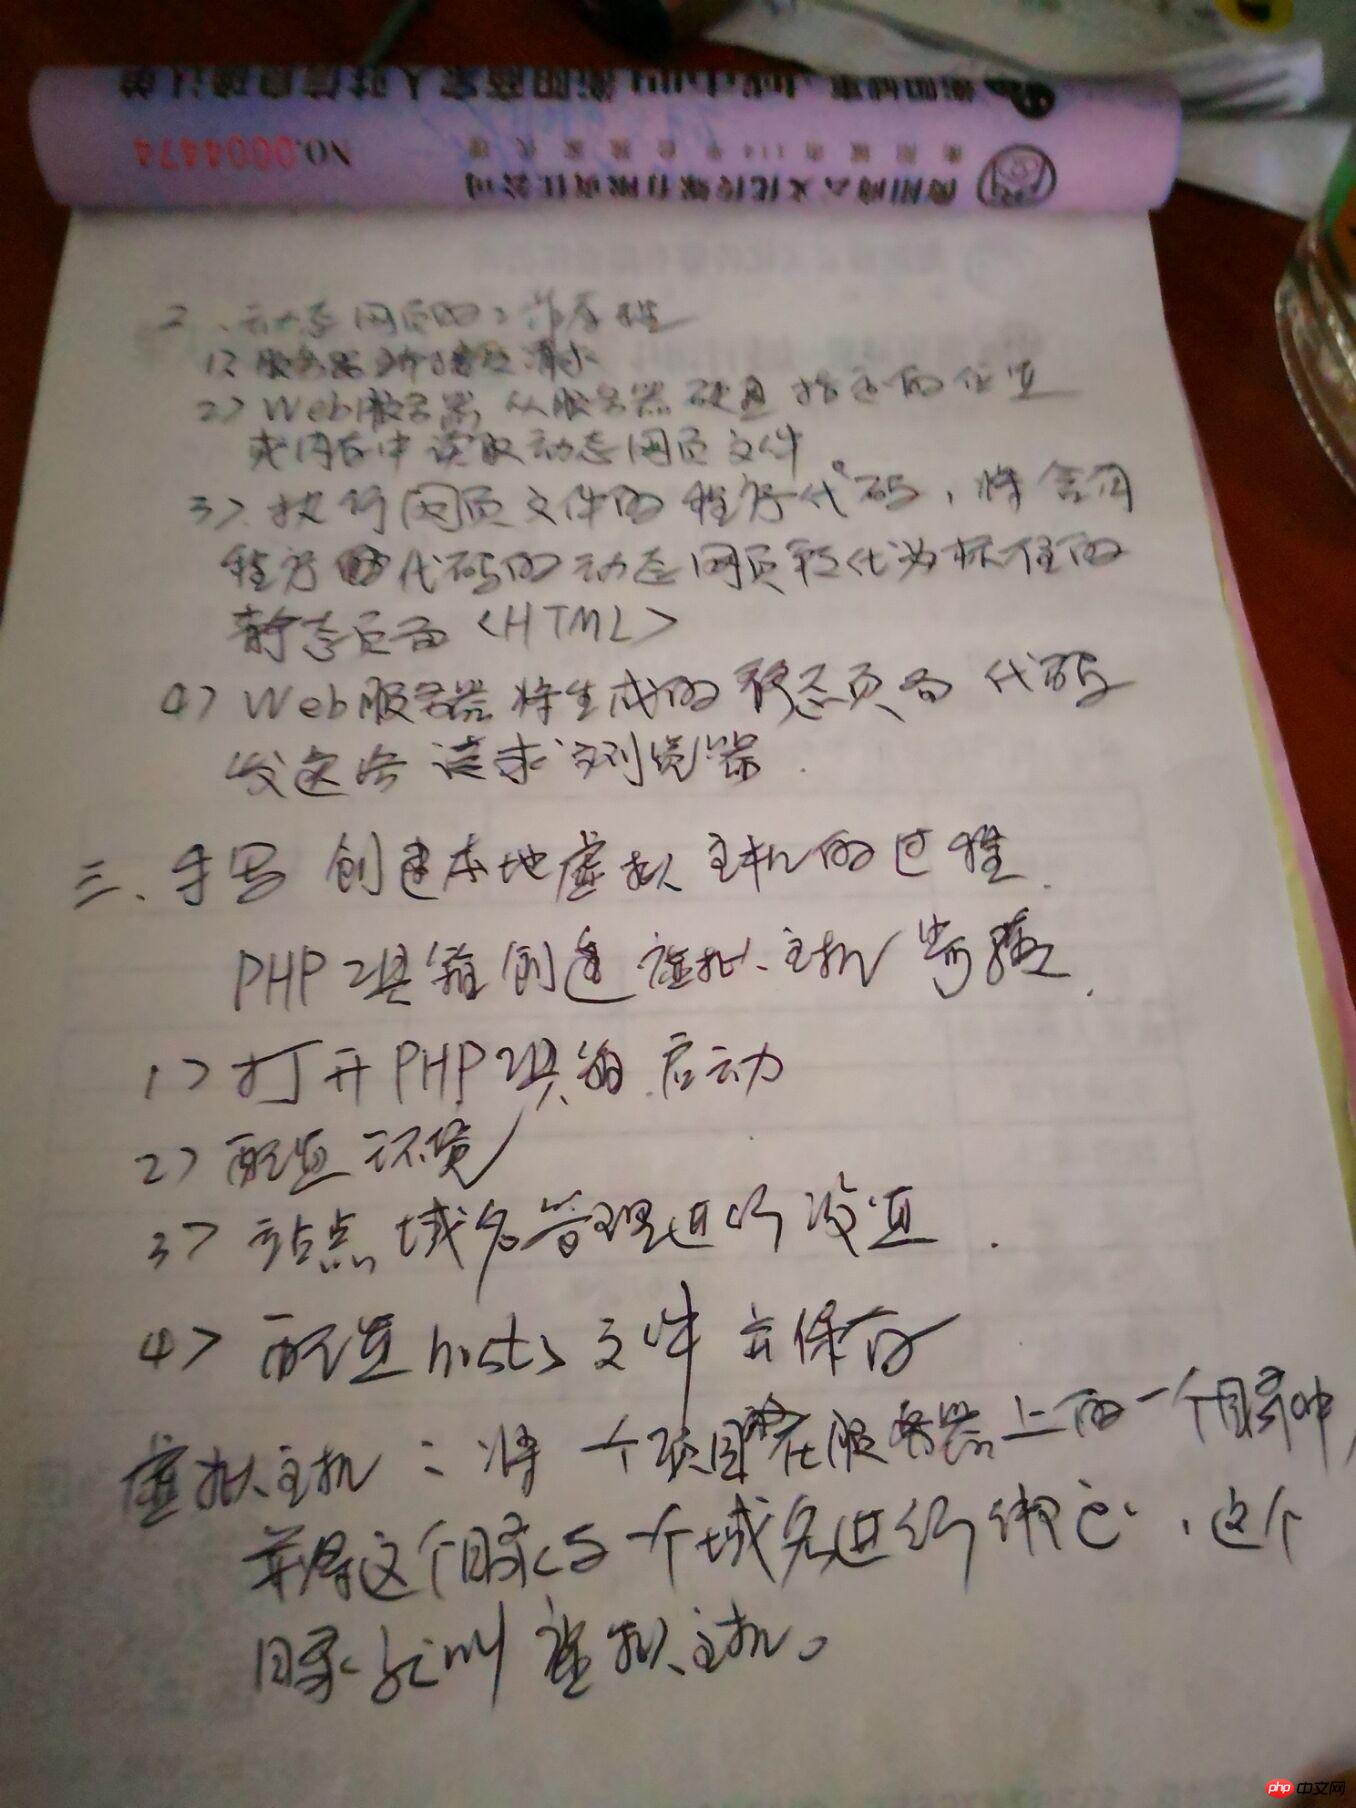 NO.0004474
衡阳尚云文化传媒有限责任公司
二、动态网页的工作原理
1> 服务器端接受请求
2> Web服务器从服务器硬盘指定的位置
或内存中读取动态网页文件
3> 执行网页文件的程序代码，将含有
程序代码的动态网页转化为标准的
静态页面<HTML>
4> Web服务器将生成的静态页面代码
发送给请求浏览器.
三、手写创建本地虚拟主机的过程.
PHP工具箱创建虚拟主机步骤.
1> 打开PHP工具箱启动
2> 配置环境
3> 站点域名管理进行设置.
4> 配置hosts文件并保存
虚拟主机：将一个项目放在服务器上的一个目录中,
并将这个目录与一个域名进行绑定，这个
目录就叫虚拟主机。
php 中文网